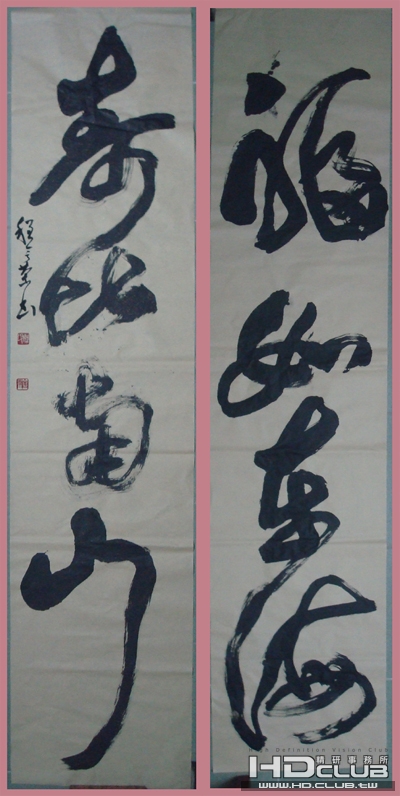 福如东海
寿比南山
High Definition Vision Club
HDCLUB 精研事務所
WWW.HD.CLUB.TW